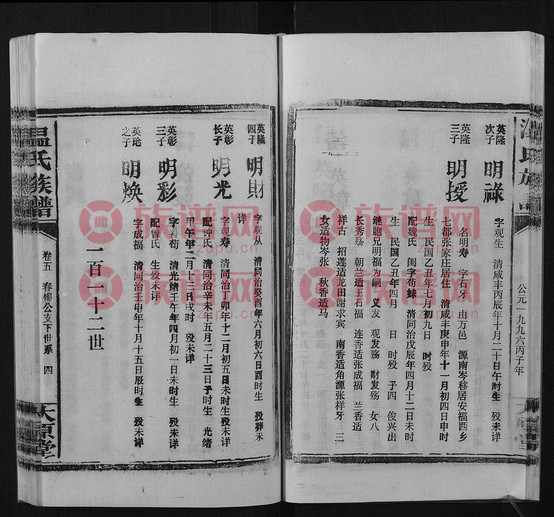 公元一九九六丙子年
英隆
次子
明祿
字观生 清咸丰丙辰年十月二十日午时生 殁未详
英隆
三子
明授
一名明寿 字石牙 由万邑 源南岑移居安福西乡
七都张家庄居住 清咸丰庚申年十一月初四日申时
生 民国乙丑年七月初九日 时殁
配魏氏 闺字荀婇 清同治戊辰年四月十二日 时
生 民国乙丑年四月 日 时殁 子四 俊兴出
继胞兄明福为嗣 义友 观发殇 财发殇 女八
长秀香适李 朝兰适王石福 连香适张成福 兰香适
祥古 招莲适龙田谢求宾 南香适角源张祥牙 三
女适物岑张 秋香适马
英隆
四子
明財
字观从 清同治癸酉年六月初六日酉时生 殁葬未
详
英彰
长子
明光
字观寿 清同治丁卯年十二月初五日未时生殁未详
配钟氏 清同治辛未年五月二十三日子时生 光绪
甲午年二月十三日戌时 殁未详
英彰
三子
明彩
字荀 清光绪壬午年四月初一日未时生 殁未详
配曾氏 生殁未详
英珆
之子
明煥
字成福 清同治壬申年十月十五日辰时生 殁未详
一百一十二世
温氏族譜
卷五 春卿公支下世系 四
太原堂